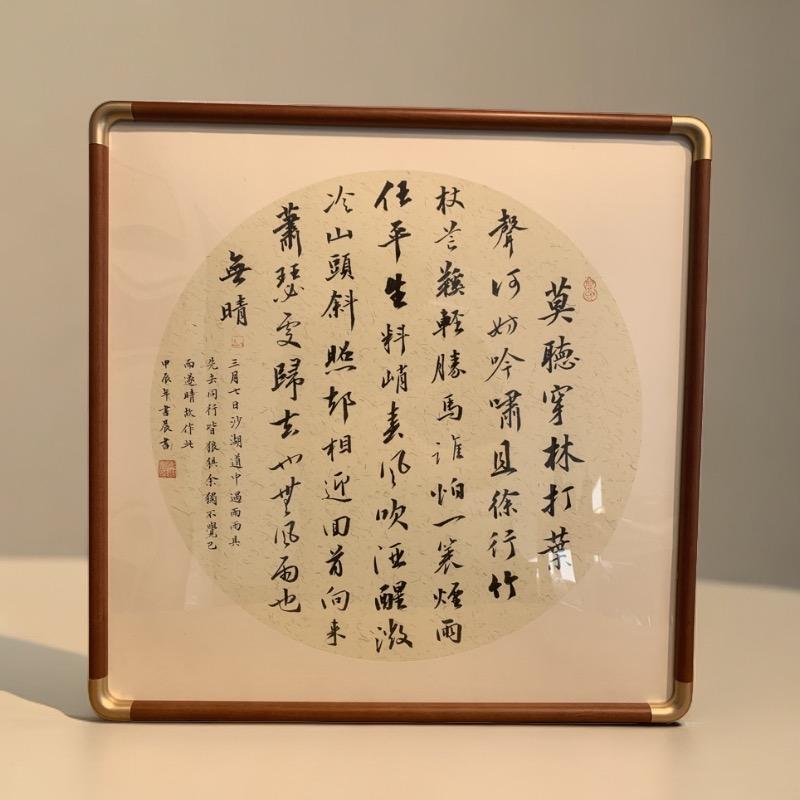 莫聽穿林打葉
聲何妨吟嘯且徐行竹
杖芒鞵輕勝馬誰怕一蓑煙雨
任平生料峭春風吹酒醒微
冷山頭斜照却相迎回首向來
蕭瑟處歸去也無風雨也
無晴
三月七日沙湖道中遇雨雨具
先去同行皆狼狽余獨不覺已
而遂晴故作此
甲辰年書晨書